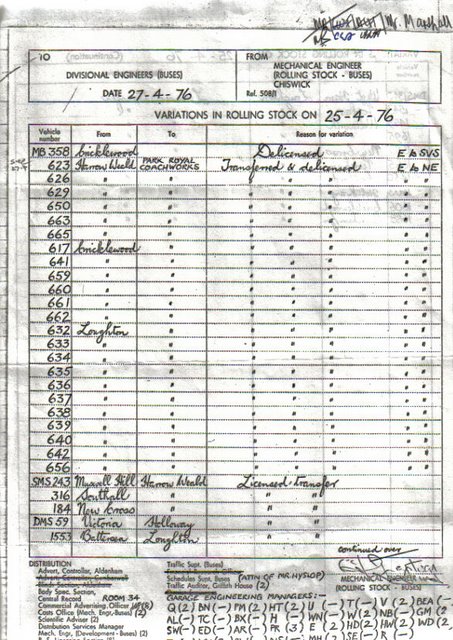 Mr. Marshall
TO
DIVISIONAL ENGINEERS (BUSES)
DATE 27-4-76
FROM
MECHANICAL ENGINEER
(ROLLING STOCK - BUSES)
CHISWICK
Ref. 508/1
VARIATIONS IN ROLLING STOCK ON 25-4-76
Vehicle number From To Reason for variation
MB 358 Cricklewood Delicensed E to SVS
623 Harrow Weald PARK ROYAL COACHWORKS Transferred & delicensed E to NE
626 " " " " " " "
629 " " " " " " "
650 " " " " " " "
663 " " " " " " "
665 " " " " " " "
617 Cricklewood " " " " " "
641 " " " " " " "
659 " " " " " " "
660 " " " " " " "
661 " " " " " " "
662 " " " " " " "
632 Loughton " " " " " "
633 " " " " " " "
634 " " " " " " "
635 " " " " " " "
636 " " " " " " "
637 " " " " " " "
638 " " " " " " "
639 " " " " " " "
640 " " " " " " "
642 " " " " " " "
656 " " " " " " "
SMS 243 Muswell Hill Harrow Weald Licensed transfer
316 Southall " " "
184 New Cross " " "
DMS 59 Victoria Holloway " "
1553 Battersea Loughton " "
continued over
MECHANICAL ENGINEER
(ROLLING STOCK - BUSES)
DISTRIBUTION
Advert, Controller, Aldenham
Advert, Controller, Camberwell
Body Spec. Section,
Central Record ROOM 34
Commercial Advertising, Officer
Costs Office (Mech. Engr,-Buses) (2)
Scientific Adviser (2)
Distribution Services Manager
Mech. Engr, (Development - Buses) (2)
Traffic Supt. (Buses)
Schedules Supt. Buses (ATTN OF MR HYSLOP)
Traffic Auditor, Griffith House (2)
GARAGE ENGINEERING MANAGERS:-
Q(2) BN(-) PM(2) HT(2) U(-) T(-) V(2) BEA(-)
AL(-) TC(-) BX(-) H(-) WN(-) W(2) NB(-) GM(2)
SW(-) ED(-) AR(-) FR(3) E(2) HD(2) HW(2) WD(2)